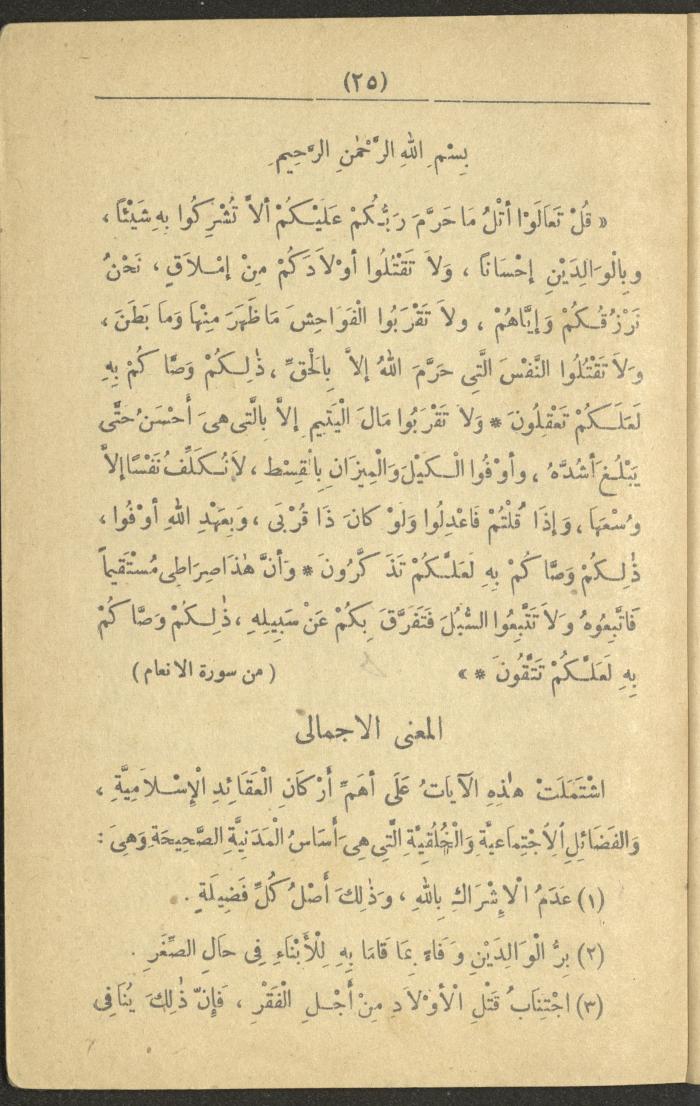 (٢٥)
بِسْمِ اللهِ الرَّحْمٰنِ الرَّحِيمِ
« قُلْ تَعَالَوْا أَتْلُ مَا حَرَّمَ رَبُّكُمْ عَلَيْكُمْ أَلاَّ تُشْرِكُوا بِهِ شَيْئًا ،
وَبِالْوَالِدَيْنِ إِحْسَانًا ، وَلاَ تَقْتُلُوا أَوْلاَدَكُمْ مِنْ إِمْلاَقٍ ، نَحْنُ
نَرْزُقُكُمْ وَإِيَّاهُمْ ، وَلاَ تَقْرَبُوا الْفَوَاحِشَ مَا ظَهَرَ مِنْهَا وَمَا بَطَنَ ،
وَلاَ تَقْتُلُوا النَّفْسَ الَّتِي حَرَّمَ اللهُ إِلاَّ بِالْحَقِّ ، ذٰلِكُمْ وَصَّاكُمْ بِهِ
لَعَلَّكُمْ تَعْقِلُونَ * وَلاَ تَقْرَبُوا مَالَ الْيَتِيمِ إِلاَّ بِالَّتِي هِيَ أَحْسَنُ حَتَّى
يَبْلُغَ أَشُدَّهُ ، وَأَوْفُوا الْكَيْلَ وَالْمِيزَانِ بِالْقِسْطِ ، لاَ نُكَلِّفُ نَفْسًا إِلاَّ
وُسْعَهَا ، وَإِذَا قُلْتُمْ فَاعْدِلُوا وَلَوْ كَانَ ذَا قُرْبَى ، وَبِعَهْدِ اللهِ أَوْفُوا ،
ذٰلِكُمْ وَصَّاكُمْ بِهِ لَعَلَّكُمْ تَذَكَّرُونَ * وَأَنَّ هٰذَا صِرَاطِي مُسْتَقِيماً
فَاتَّبِعُوهُ وَلاَ تَتَّبِعُوا السُّبُلَ فَتَفَرَّقَ بِكُمْ عَنْ سَبِيلِهِ ، ذٰلِكُمْ وَصَّاكُمْ
بِهِ لَعَلَّكُمْ تَتَّقُونَ * » ( من سورة الانعام )
المعنى الاجمالى
اشْتَمَلَتْ هٰذِهِ الْآيَاتُ عَلَى أَهَمِّ أَرْكَانِ الْعَقَائِدِ الْإِسْلاَمِيَّةِ ،
وَالفَضَائِلِ الْاِجْتِمَاعِيَّةِ وَالْخُلُقِيَّةِ الَّتِي هِيَ أَسَاسُ الْمَدَنِيَّةِ الصَّحِيحَةِ وَهِيَ :
(١) عَدَمُ الْإِشْرَاكِ بِاللهِ ، وَذٰلِكَ أَصْلُ كُلِّ فَضِيلَةٍ .
(٢) بِرُّ الْوَالِدَيْنِ وَفَاءً بِمَا قَامَا بِهِ لِلْأَبْنَاءِ فِي حَالِ الصِّغَرِ .
(٣) اجْتِنَابُ قَتْلِ الْأَوْلاَدِ مِنْ أَجْلِ الْفَقْرِ ، فَإِنَّ ذٰلِكَ يُنَافِي